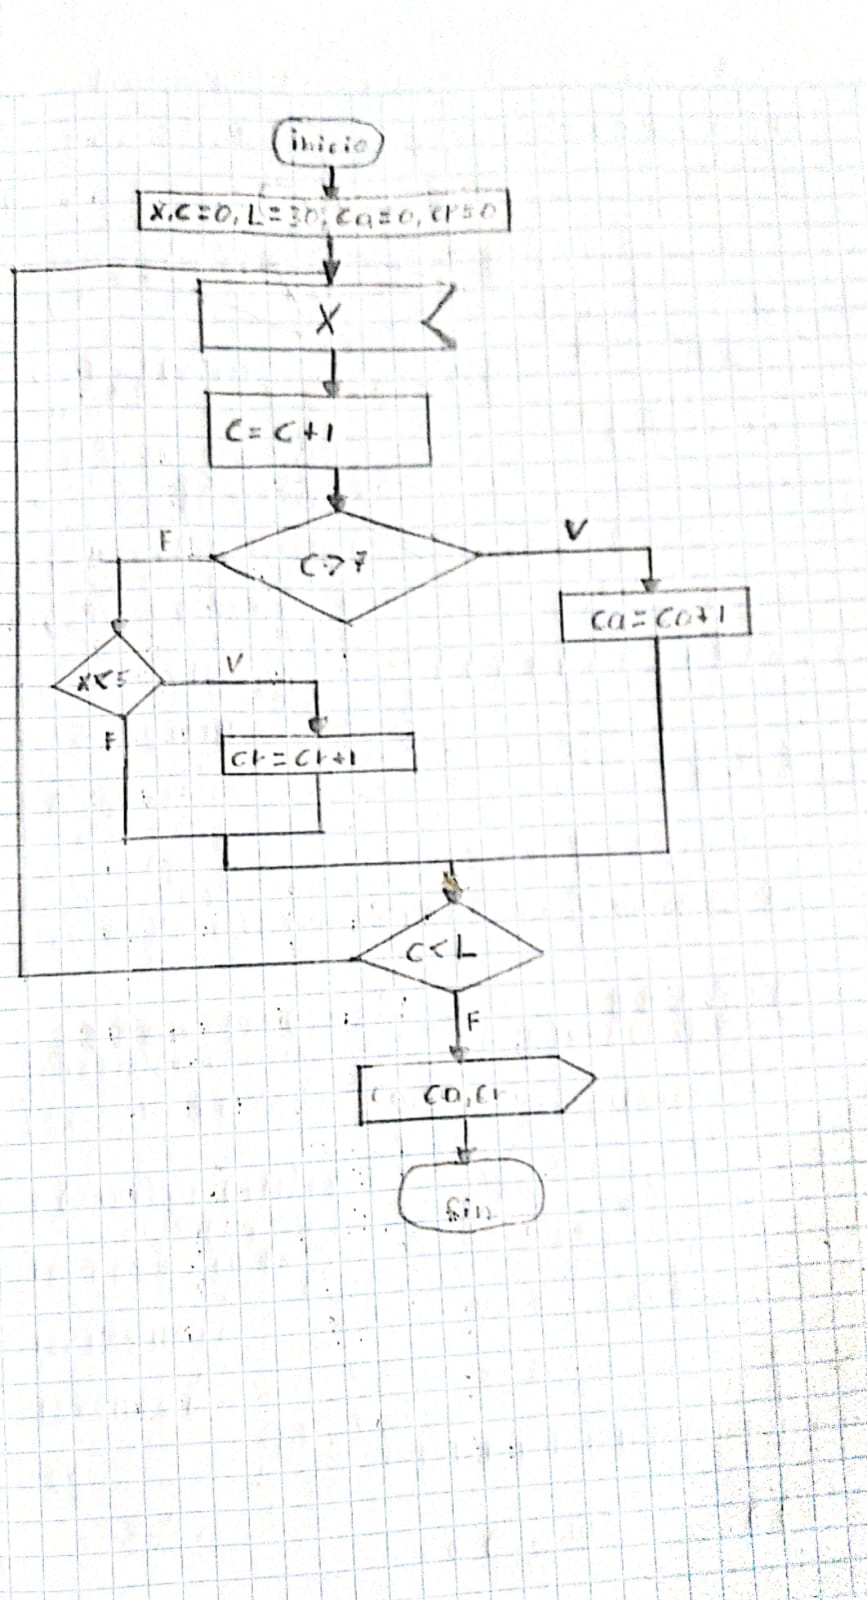 inicio
X,C=0, L=30, ca=0, cr=0
X
C = C+1
F
C>7
V
ca=ca+1
X<5
V
F
cr=cr+1
C<L
F
ca,cr
fin